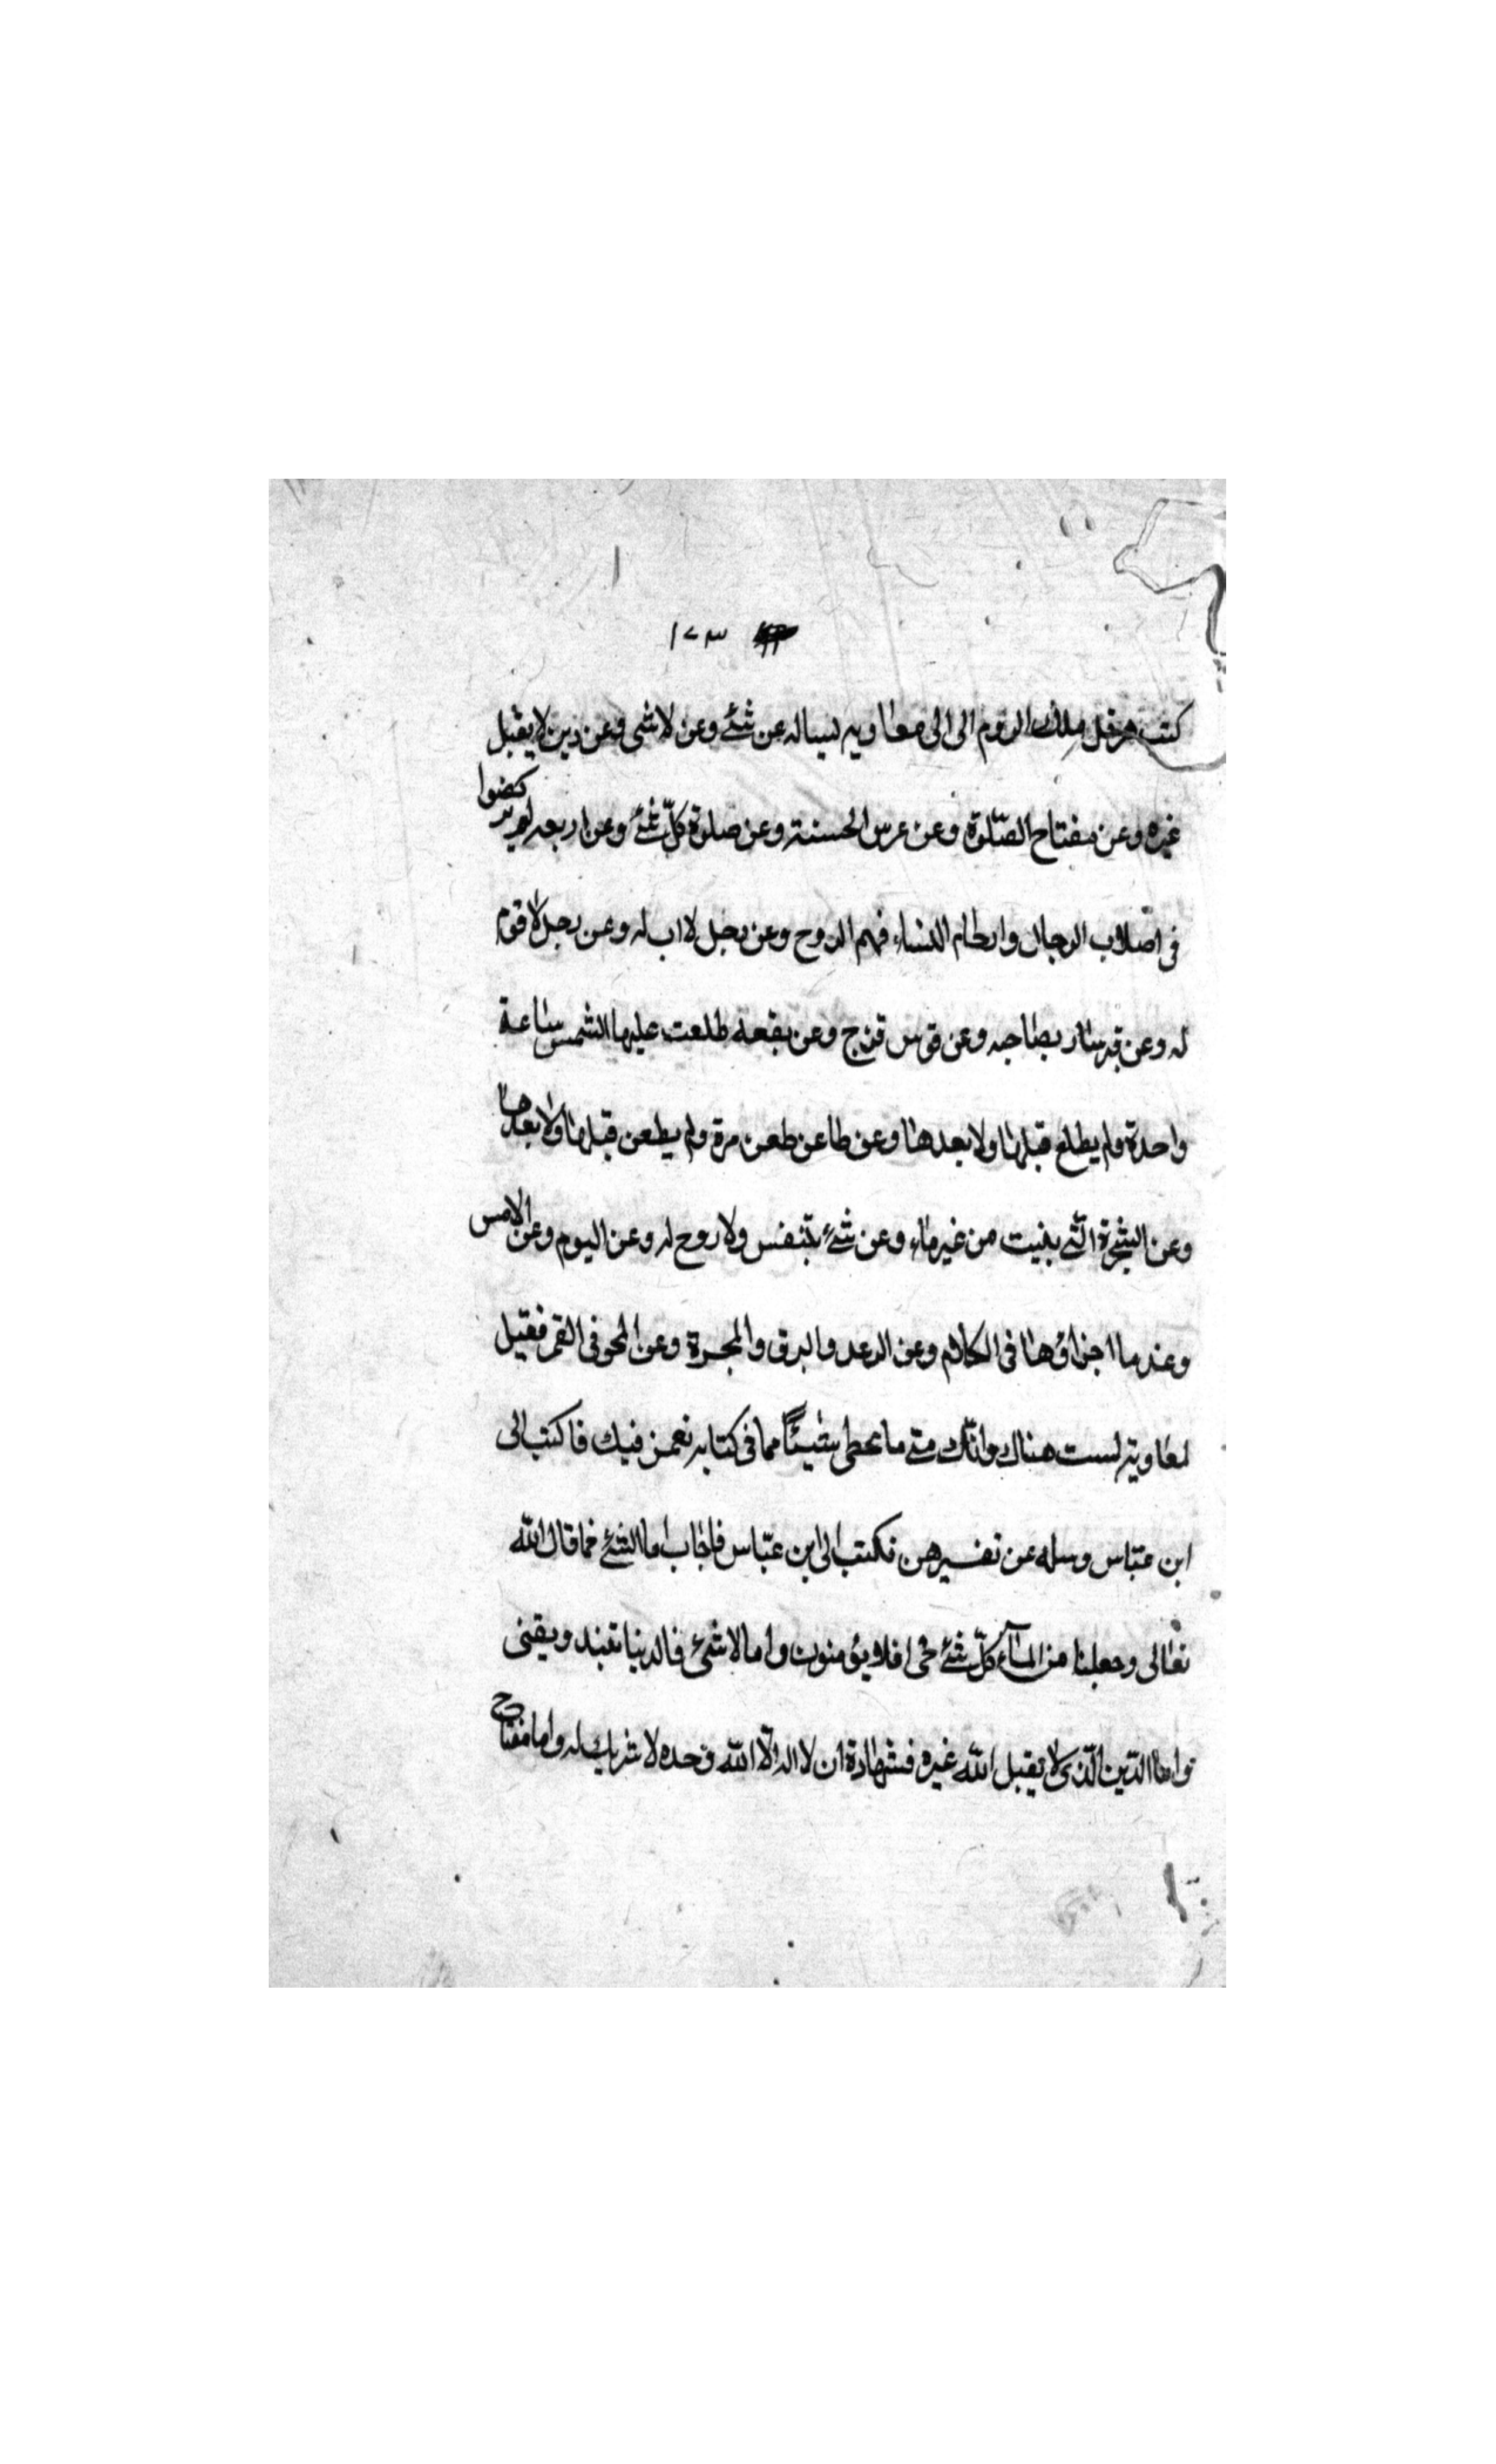 ١٧٣
كتب هرقل ملك الروم الى الى معاويه ليساله عن شئ وعن لا شى وعن دين لا يقبل
غيره وعن مفتاح الصّلوة وعن غرس الحسنة وعن صلوة كلّ شئ وعن اربعه لم يركضوا
فى اصلاب الرجال وارحام النساء فهم الروح وعن رجل لا اب له وعن رجل لا قوم
له وعن قبر سار بصاحبه وعن قوس قزح وعن بقعه طلعت عليها الشمس ساعة
واحدة ولم يطلع قبلها ولا بعدها وعن ظاعن ظعن مرة ولم يظعن قبلها ولا بعدها
وعن الشجرة الّتى نبتت من غير ماء وعن شئ يتنفس ولا روح له وعن اليوم وعن الامس
وعند ما اجزاؤها فى الكلام وعن الرعد والبرق والمجرة وعن المحو فى القمر فقيل
لمعاوية لست هناك وانّك متى ما تخطى شيئًا مما فى كتابه نغمز فيك فاكتب الى
ابن عبّاس وسله عن تفسيرهن فكتب الى ابن عبّاس فاجاب اما الشئ فما قال الله
تعالى وجعلنا من المآء كلّ شئ حى افلا يؤمنون واما لا شئ فالدنيا تبيد ويفنى
واما الدّين الّذى لا يقبل الله غيره فشهادة ان لا اله الّا الله وحده لا شريك له واما مفتاح